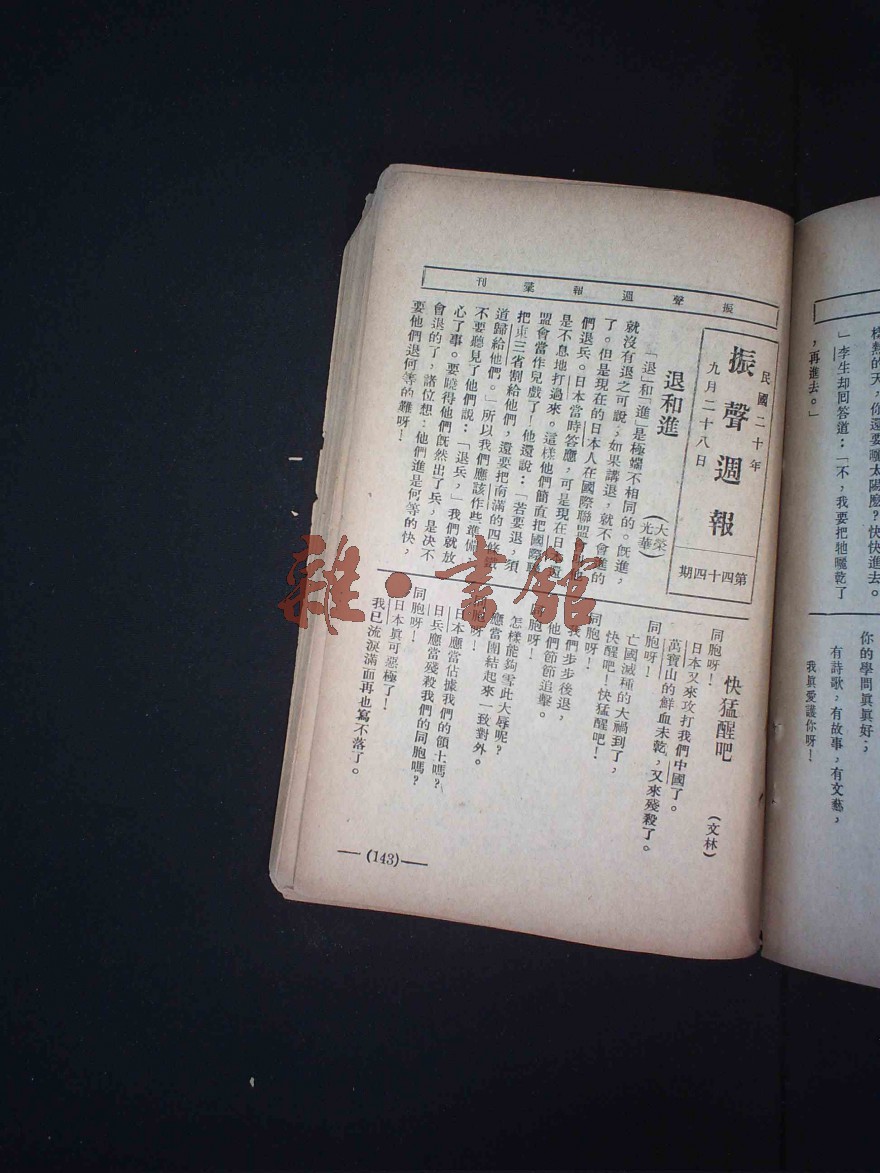 振聲週報彙刊
民國二十年
振聲週報
九月二十八日
第四十四期
退和進
(大榮
光華)
「退」和「進」是極端不相同的。旣進，
就沒有退之可說，如果講退，就不會進的
了。但是現在的日本人在國際聯盟
們退兵。日本當時答應，可是現在日
是不息地打過來。這樣他們簡直把國際聯
盟會當作兒戲了！他還說：「若要退，須
把東三省割給他們，還要把南滿的四條
道歸給他們。」所以我們應該作些準備，
不要聽見了他們說：「退兵，」我們就放
心了事。要曉得他們旣然出了兵，是决不
會退的了，諸位想：他們進是何等的快，
要他們退何等的難呀！
快猛醒吧
(文林)
同胞呀！
日本又來攻打我們中國了。
萬寶山的鮮血未乾，又來殘殺了。
同胞呀！
亡國滅種的大禍到了，
快醒吧！快猛醒吧！
同胞呀！
我們步步後退，
他們節節追擊。
同胞呀！
怎樣能夠雪此大辱呢？
應當團結起來一致對外。
同胞呀！
日本應當佔據我們的領土嗎？
日兵應當殘殺我們的同胞嗎？
同胞呀！
日本眞可惡極了！
我已流淚滿面再也寫不落了。
(143)
樣熱的天，你還要曬太陽麽？快快進去。
」李生却回答道：「不，我要把牠曬乾了
，再進去。」
你的學問眞眞好；
有詩歌，有故事，有文藝，
我眞愛護你呀！
雜·書館